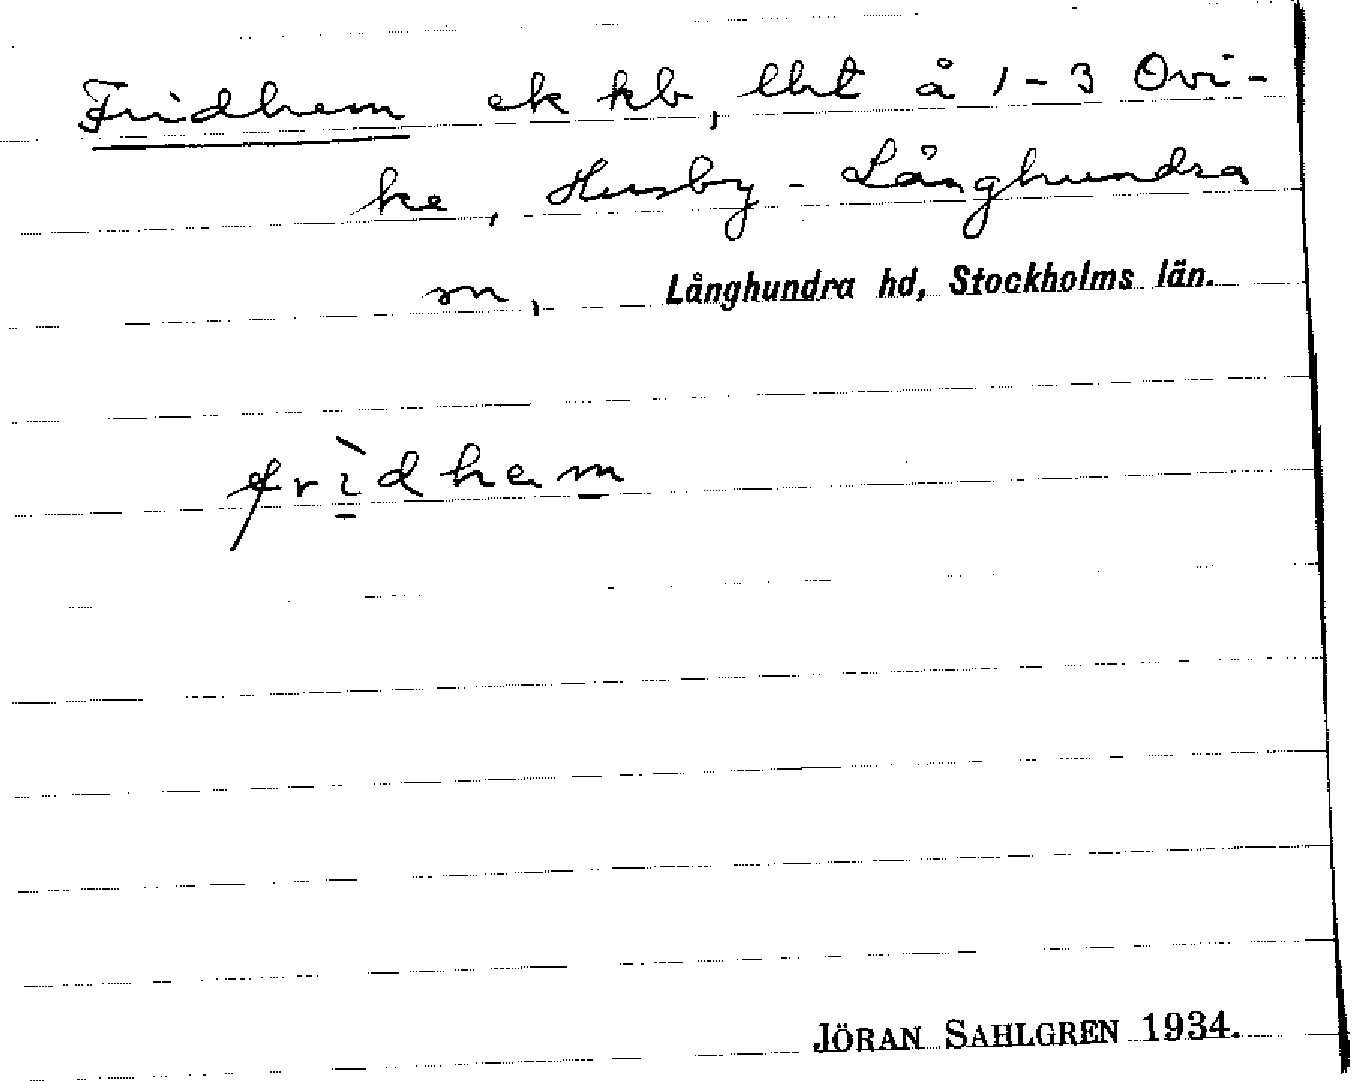 Fridhem ek kb, lht å 1-3 Ovi-
ke, Husby-Långhundra
sn, Långhundra hd, Stockholms län.
frìdhem
JÖRAN SAHLGREN 1934.